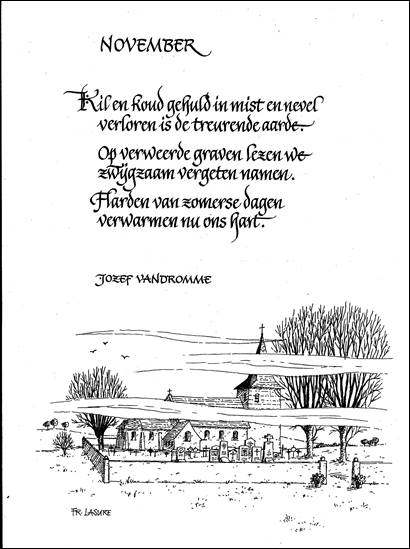 NOVEMBER
Kil en koud gehuld in mist en nevel
verloren is de treurende aarde.
Op verweerde graven lezen we
zwijgzaam vergeten namen.
Flarden van zomerse dagen
verwarmen nu ons hart.
JOZEF VANDROMME
FR. LASURE